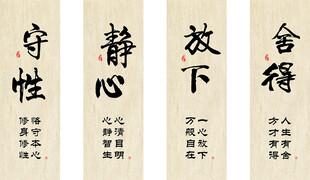 守性
恪守本心
修身修性
静心
心清目明
心静智生
放下
一心放下
万般自在
舍得
人生有舍
方才有得